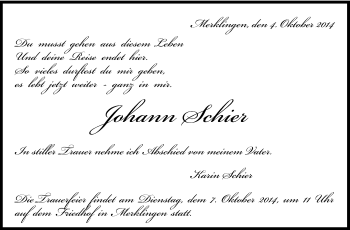 Merklingen, den 4. Oktober 2014
Du musst gehen aus diesem Leben
Und deine Reise endet hier.
So vieles durftest du mir geben,
es lebt jetzt weiter - ganz in mir.
Johann Schier
In stiller Trauer nehme ich Abschied von meinem Vater.
Karin Schier
Die Trauerfeier findet am Dienstag, dem 7. Oktober 2014, um 11 Uhr
auf dem Friedhof in Merklingen statt.